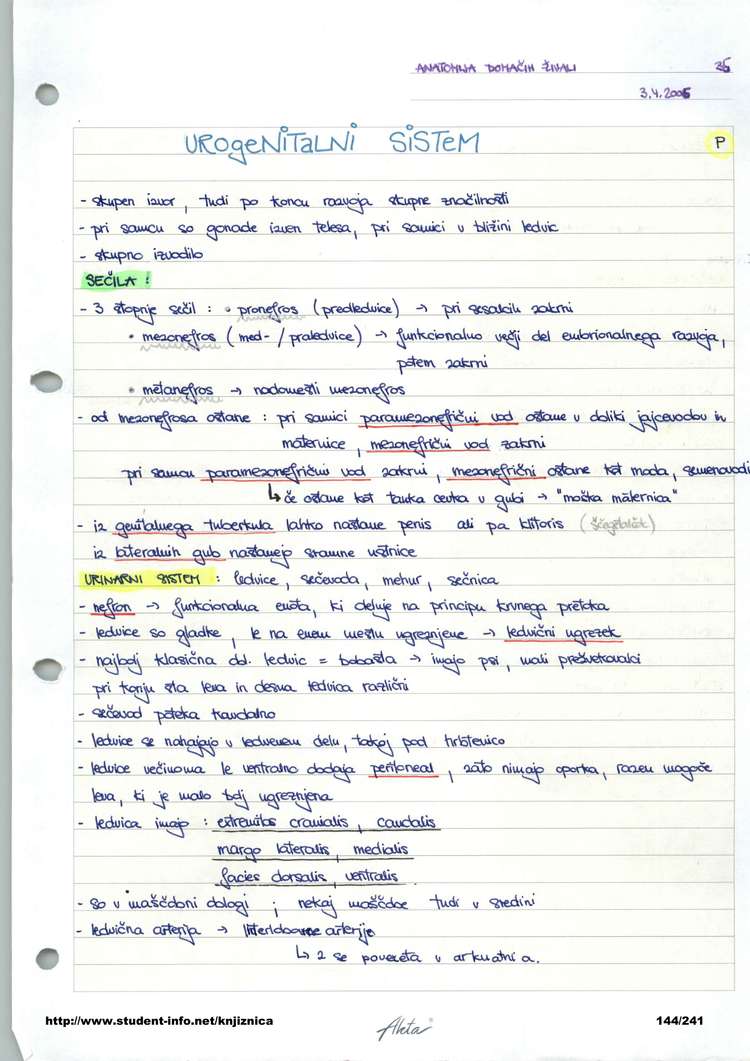 ANATOMIJA DOMAČIH ŽIVALI 36
3.4.2006
UROGENITALNI SISTEM P
- skupen izvor, tudi po koncu razvoja skupne značilnosti
- pri samcu so gonade izven telesa, pri samici v bližini ledvic
- skupno izvodilo
SEČILA :
- 3 stopnje sečil : • pronefros (predledvice) → pri sesalcih zakrni
• mezonefros (med- / praledvice) → funkcionalno večji del embrionalnega razvoja,
potem zakrni
• metanefros → nadomesti mezonefros
- od mezonefrosa ostane : pri samici paramezonefrični vod ostane v obliki jajcevodov in
maternice, mezonefrični vod zakrni
pri samcu paramezonefrični vod zakrni, mezonefrični ostane kot moda, semenovodi
↳ če ostane kot tanka cevka v gubi → "moška maternica"
- iz genitalnega tuberkula lahko nastane penis ali pa klitoris (ščegetalček)
iz lateralnih gub nastanejo sramne ustnice
URINARNI SISTEM : ledvice, sečevoda, mehur, sečnica
- nefron → funkcionalna enota, ki deluje na principu krvnega pretoka
- ledvice so gladke, le na enem mestu ugreznjene → ledvični ugrezek
- najbolj klasična obl. ledvic = bobasta → imajo psi, mali prežvekovalci
pri konju sta leva in desna ledvica različni
- sečevod poteka kaudalno
- ledvice se nahajajo v ledvenem delu, takoj pod hrbtenico
- ledvice večinoma le ventralno obdaja peritoneal, zato nimajo oporka, razen mogoče
leva, ki je malo bolj ugreznjena
- ledvica imajo : extremitas cranialis, caudalis
margo lateralis, medialis
facies dorsalis, ventralis
- so v maščobni oblogi ; nekaj maščobe tudi v sredini
- ledvična arterija → interlobarne arterije
↳ 2 se povezeta v arkuatni a.
http://www.student-info.net/knjiznica Akta 144/241